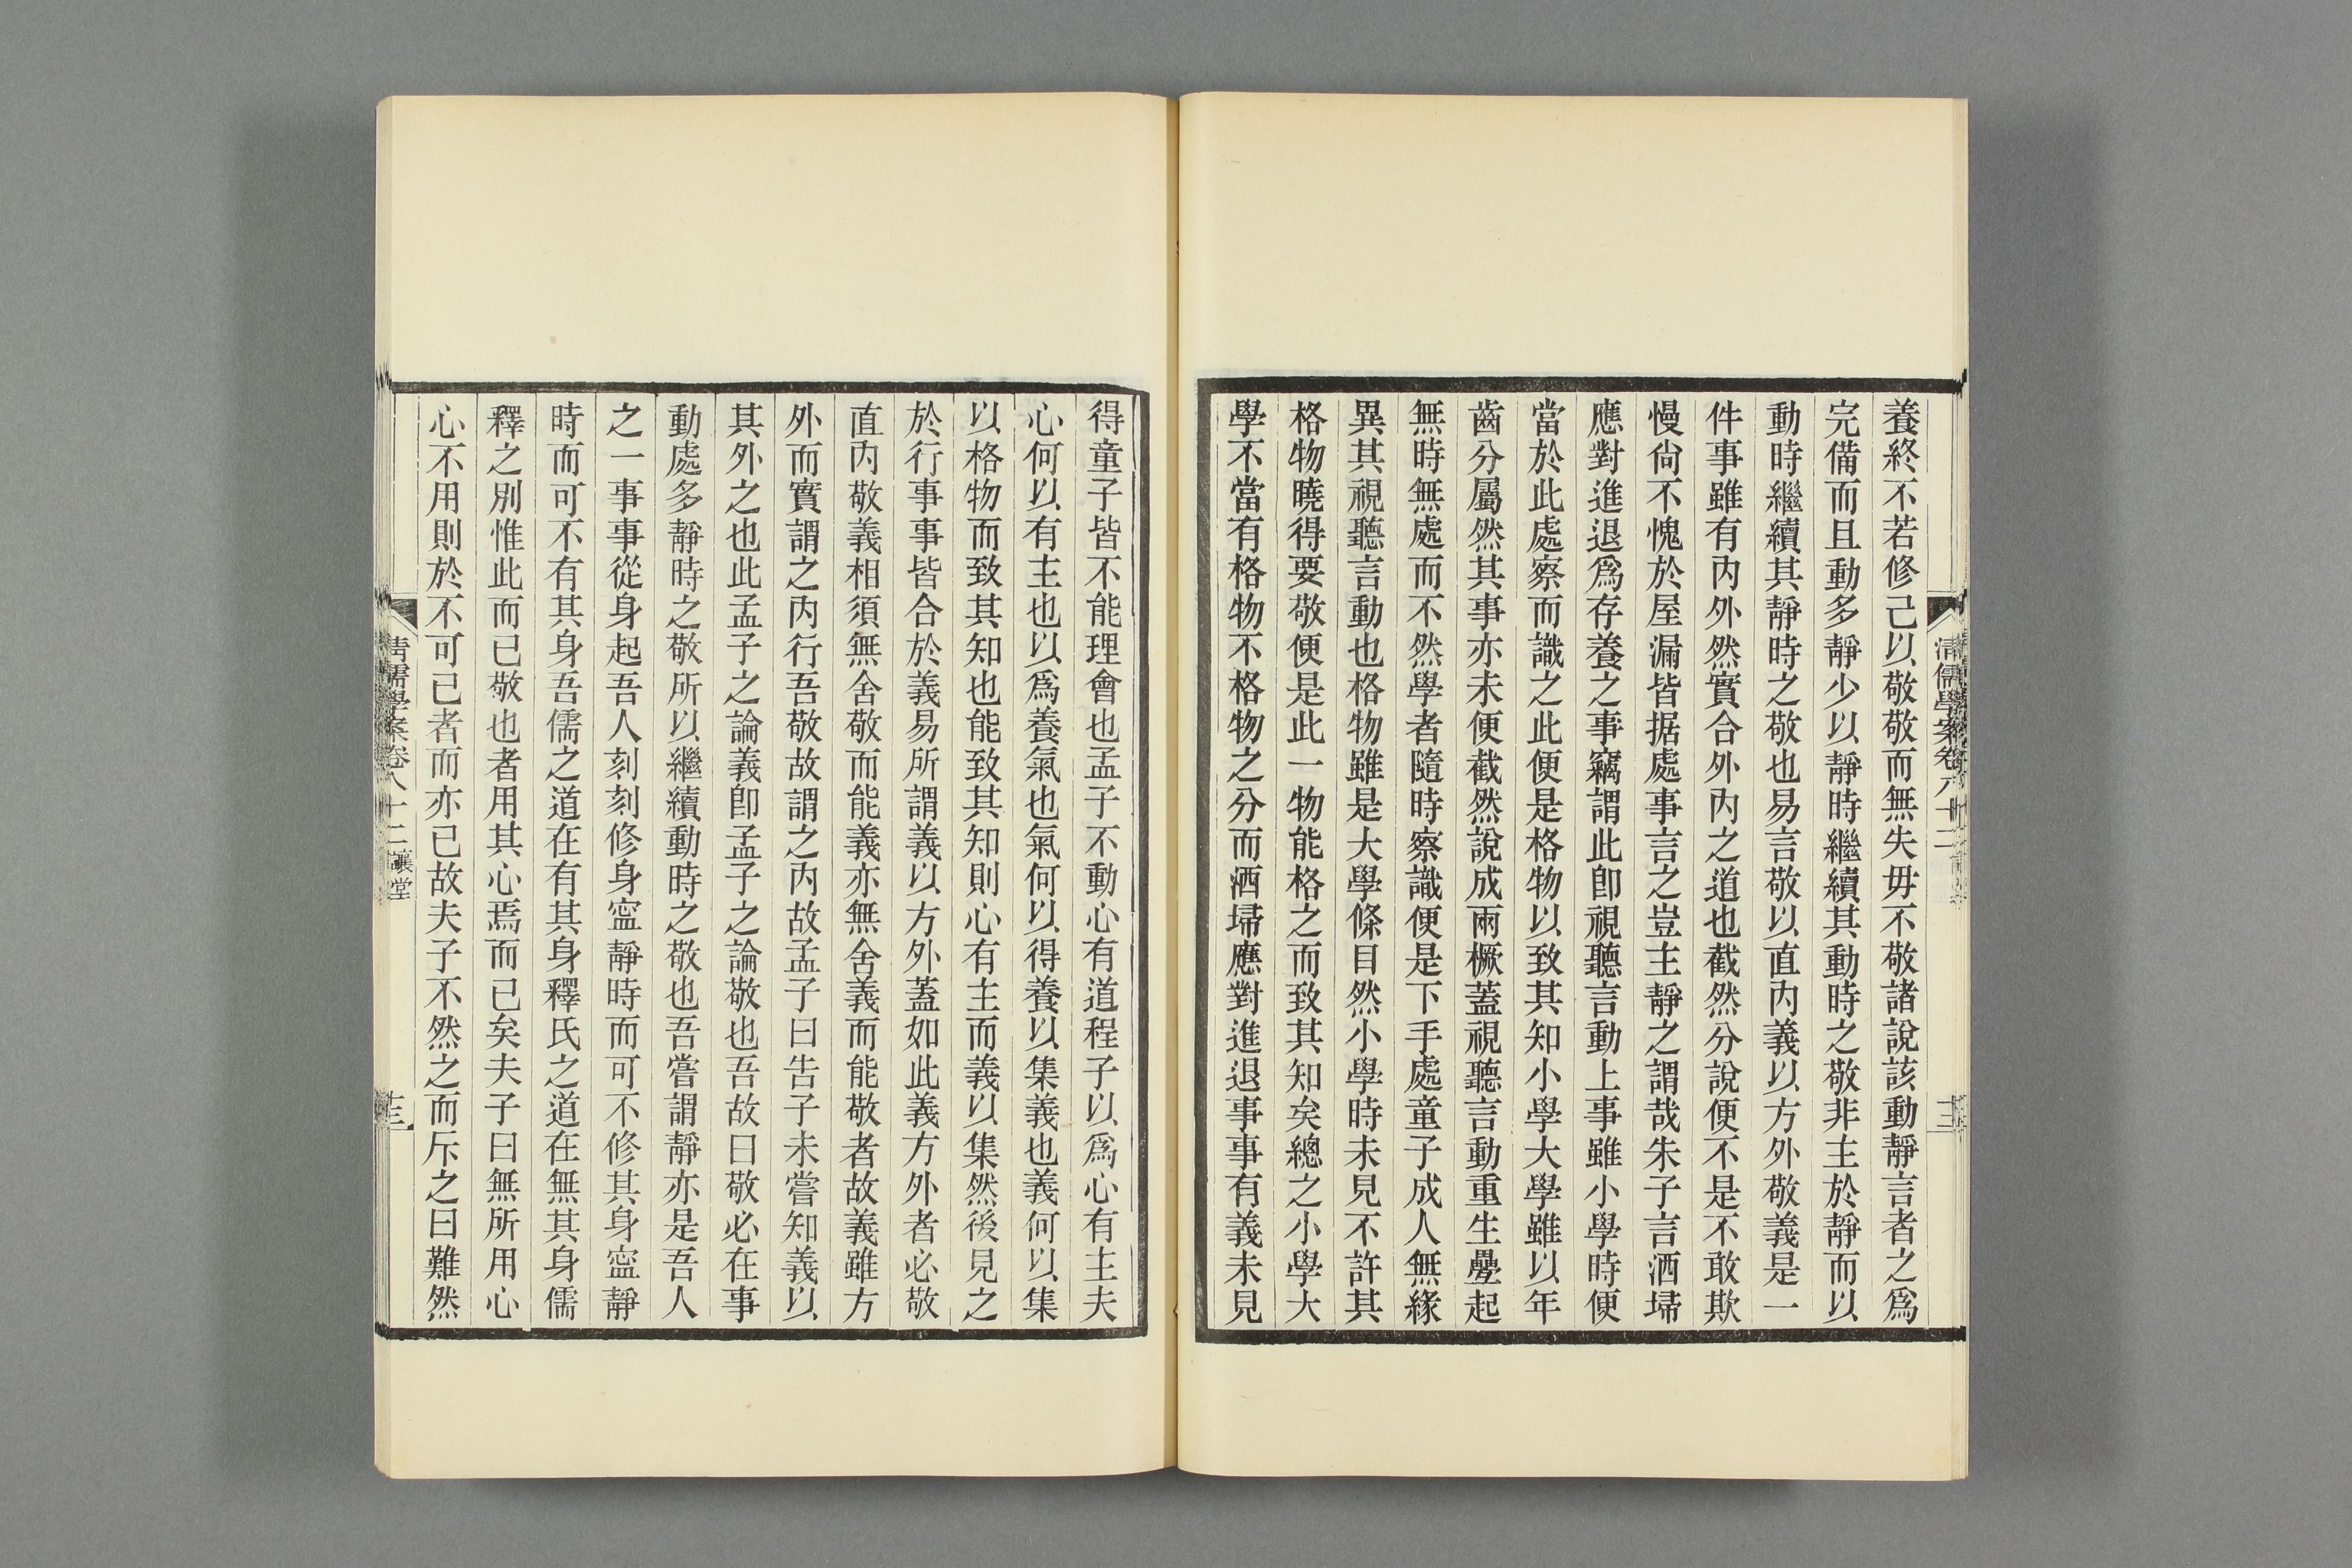 養終不若修己以敬敬而無失毋不敬諸說該動靜言者之爲
完備而且動多靜少以靜時繼續其動時之敬非主於靜而以
動時繼續其靜時之敬也易言敬以直內義以方外敬義是一
件事雖有內外然實合外內之道也截然分說便不是不敢欺
慢尙不愧於屋漏皆据處事言之豈主靜之謂哉朱子言洒埽
應對進退爲存養之事竊謂此卽視聽言動上事雖小學時便
當於此處察而識之此便是格物以致其知小學大學雖以年
齒分屬然其事亦未便截然說成兩橛蓋視聽言動重生疊起
無時無處而不然學者隨時察識便是下手處童子成人無緣
異其視聽言動也格物雖是大學條目然小學時未見不許其
格物曉得要敬便是此一物能格之而致其知矣總之小學大
學不當有格物不格物之分而洒埽應對進退事事有義未見
清儒學案卷八十二
得童子皆不能理會也孟子不動心有道程子以爲心有主夫
心何以有主也以爲養氣也氣何以得養以集義也義何以集
以格物而致其知也能致其知則心有主而義以集然後見之
於行事事皆合於義易所謂義以方外蓋如此義方外者必敬
直內敬義相須無舍敬而能義亦無舍義而能敬者故義雖方
外而實謂之內行吾敬故謂之內故孟子曰告子未嘗知義以
其外之也此孟子之論義卽孟子之論敬也吾故曰敬必在事
動處多靜時之敬所以繼續動時之敬也吾嘗謂靜亦是吾人
之一事事從身起吾人刻刻修身寍靜時而可不修其身寍靜
時而可不有其身吾儒之道在有其身釋氏之道在無其身儒
釋之別惟此而已敬也者用其心焉而已矣夫子曰無所用心
心不用則於不可已者而亦已故夫子不然之而斥之曰難然
清儒學案卷八十二
十三